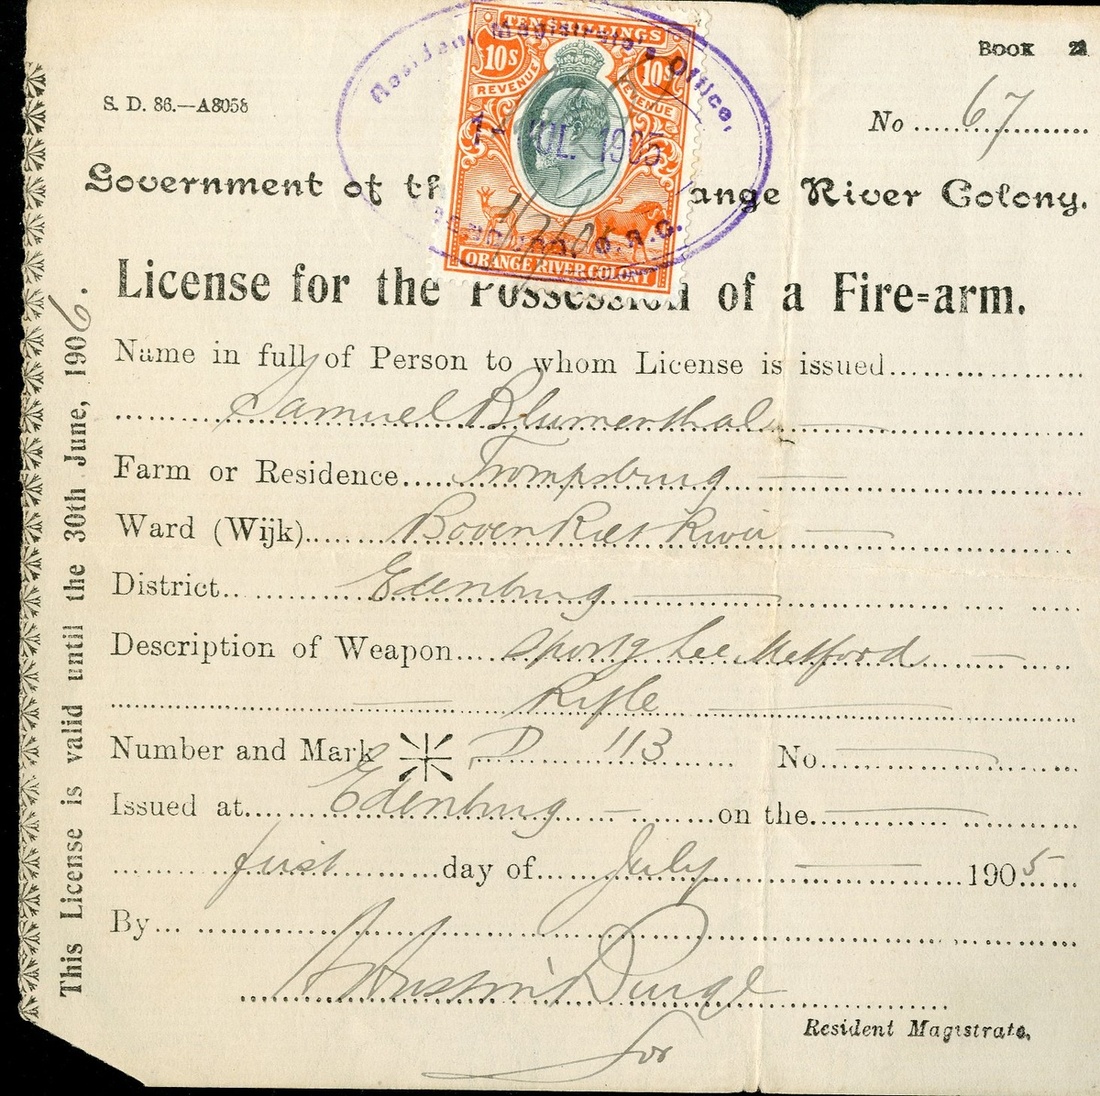 BOOK 22
S. D. 86.—A8058
No 67
TEN SHILLINGS
10s 10s
REVENUE REVENUE
Resident Magistrate's Office,
1 JUL. 1905
1/7/05
O.R.C.
ORANGE RIVER COLONY
Government of th ange River Colony.
License for the Possession of a Fire=arm.
Name in full of Person to whom License is issued
Samuel Blumenthal
Farm or Residence Trompsburg
Ward (Wijk) Boven Riet River
District Edenburg
Description of Weapon Sportg Lee Metford
Rifle
Number and Mark D 113 No
Issued at Edenburg on the
first day of July 1905
By
Resident Magistrate,
for
This License is valid until the 30th June, 1906.